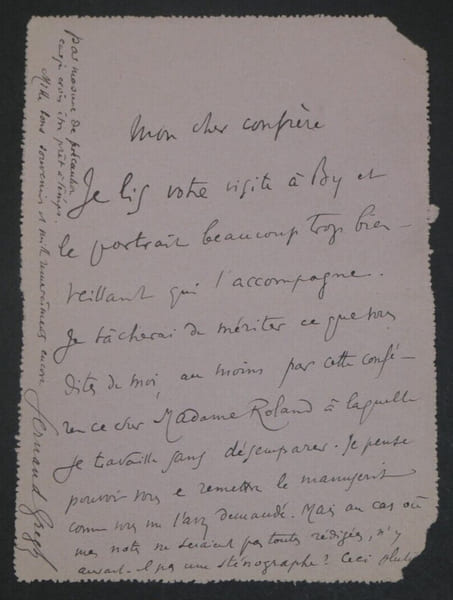 Mon cher confrère
Je lis votre visite à By et
le portrait beaucoup trop bien-
veillant qui l'accompagne.
Je tâcherai de mériter ce que vous
dites de moi, au moins par cette confé-
rence sur Madame Roland à laquelle
je travaille sans désemparer. Je pense
pouvoir vous e remettre le manuscrit
comme vous me l'avez demandé. Mais au cas où
mes notes ne seraient pas toutes rédigées, n'y
aurait-il pas une sténographe? Ceci plutôt
par mesure de précaution
car je crois être prêt à temps.
Mille bons souvenirs et mille remerciements encore
Fernand Gregh